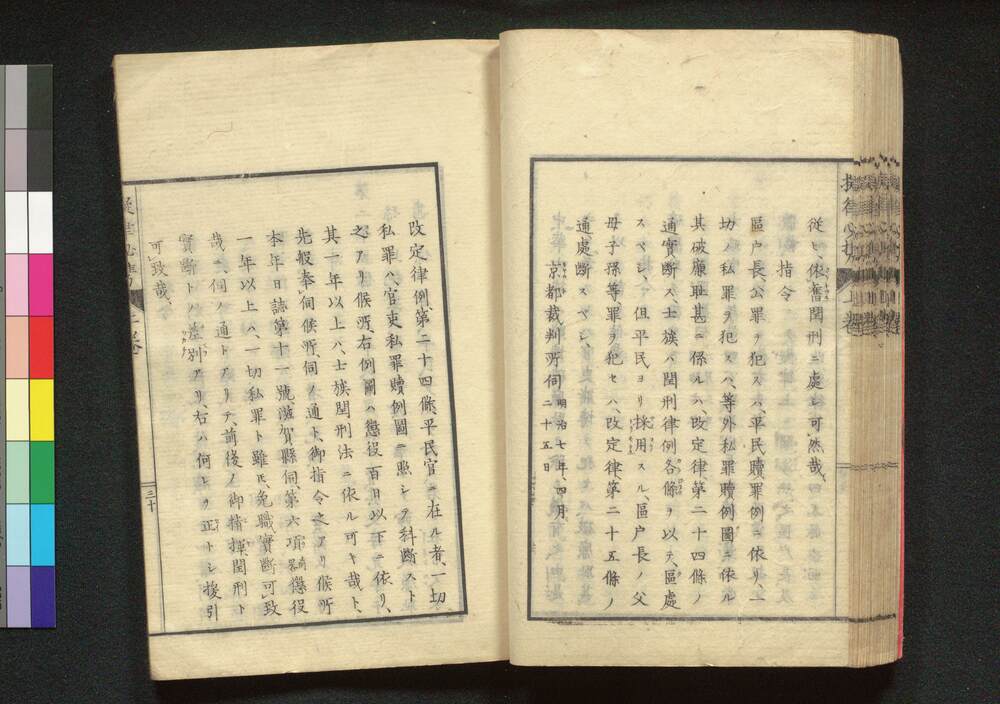 従ヒ、依舊閏刑ニ處シ可然哉、
指令
區戸長、公罪ヲ犯スハ、平民贖罪例ニ依リ、一
切ノ私罪ヲ犯スハ、等外私罪贖例圖ニ依ル
其破廉耻甚ニ係ルハ、改定律第二十四條ノ
通實断ス、士族ハ閏刑律例各條ヲ以テ、區處
スベシ、但平民ヨリ採用スル、區戸長ノ父
母子孫等、罪ヲ犯セハ、改定律第二十五條ノ
通處断スベシ、
京都裁判所伺 明治七年、四月、二十五日
改定律例、第二十四條、平民官ニ在ル者、一切
私罪ハ、官吏私罪贖例圖ニ照シテ科断スト
之アリ候所、右例圖ハ懲役百日以下ニ依リ、
其一年以上ハ、士族閏刑法ニ依ル可キ哉ト、
先般奉伺候所、伺ノ通ト、御指令之アリ候所
本年日誌第十一號、滋賀縣伺、第六項畧懲役
一年以上ハ、一切私罪ト雖𪜈、免職實断可致
哉ニ、伺ノ通トアリテ、前後ノ御指揮閏刑ト
實断トノ差別アリ右ハ何レヲ正トシ援引
可致哉、
三十